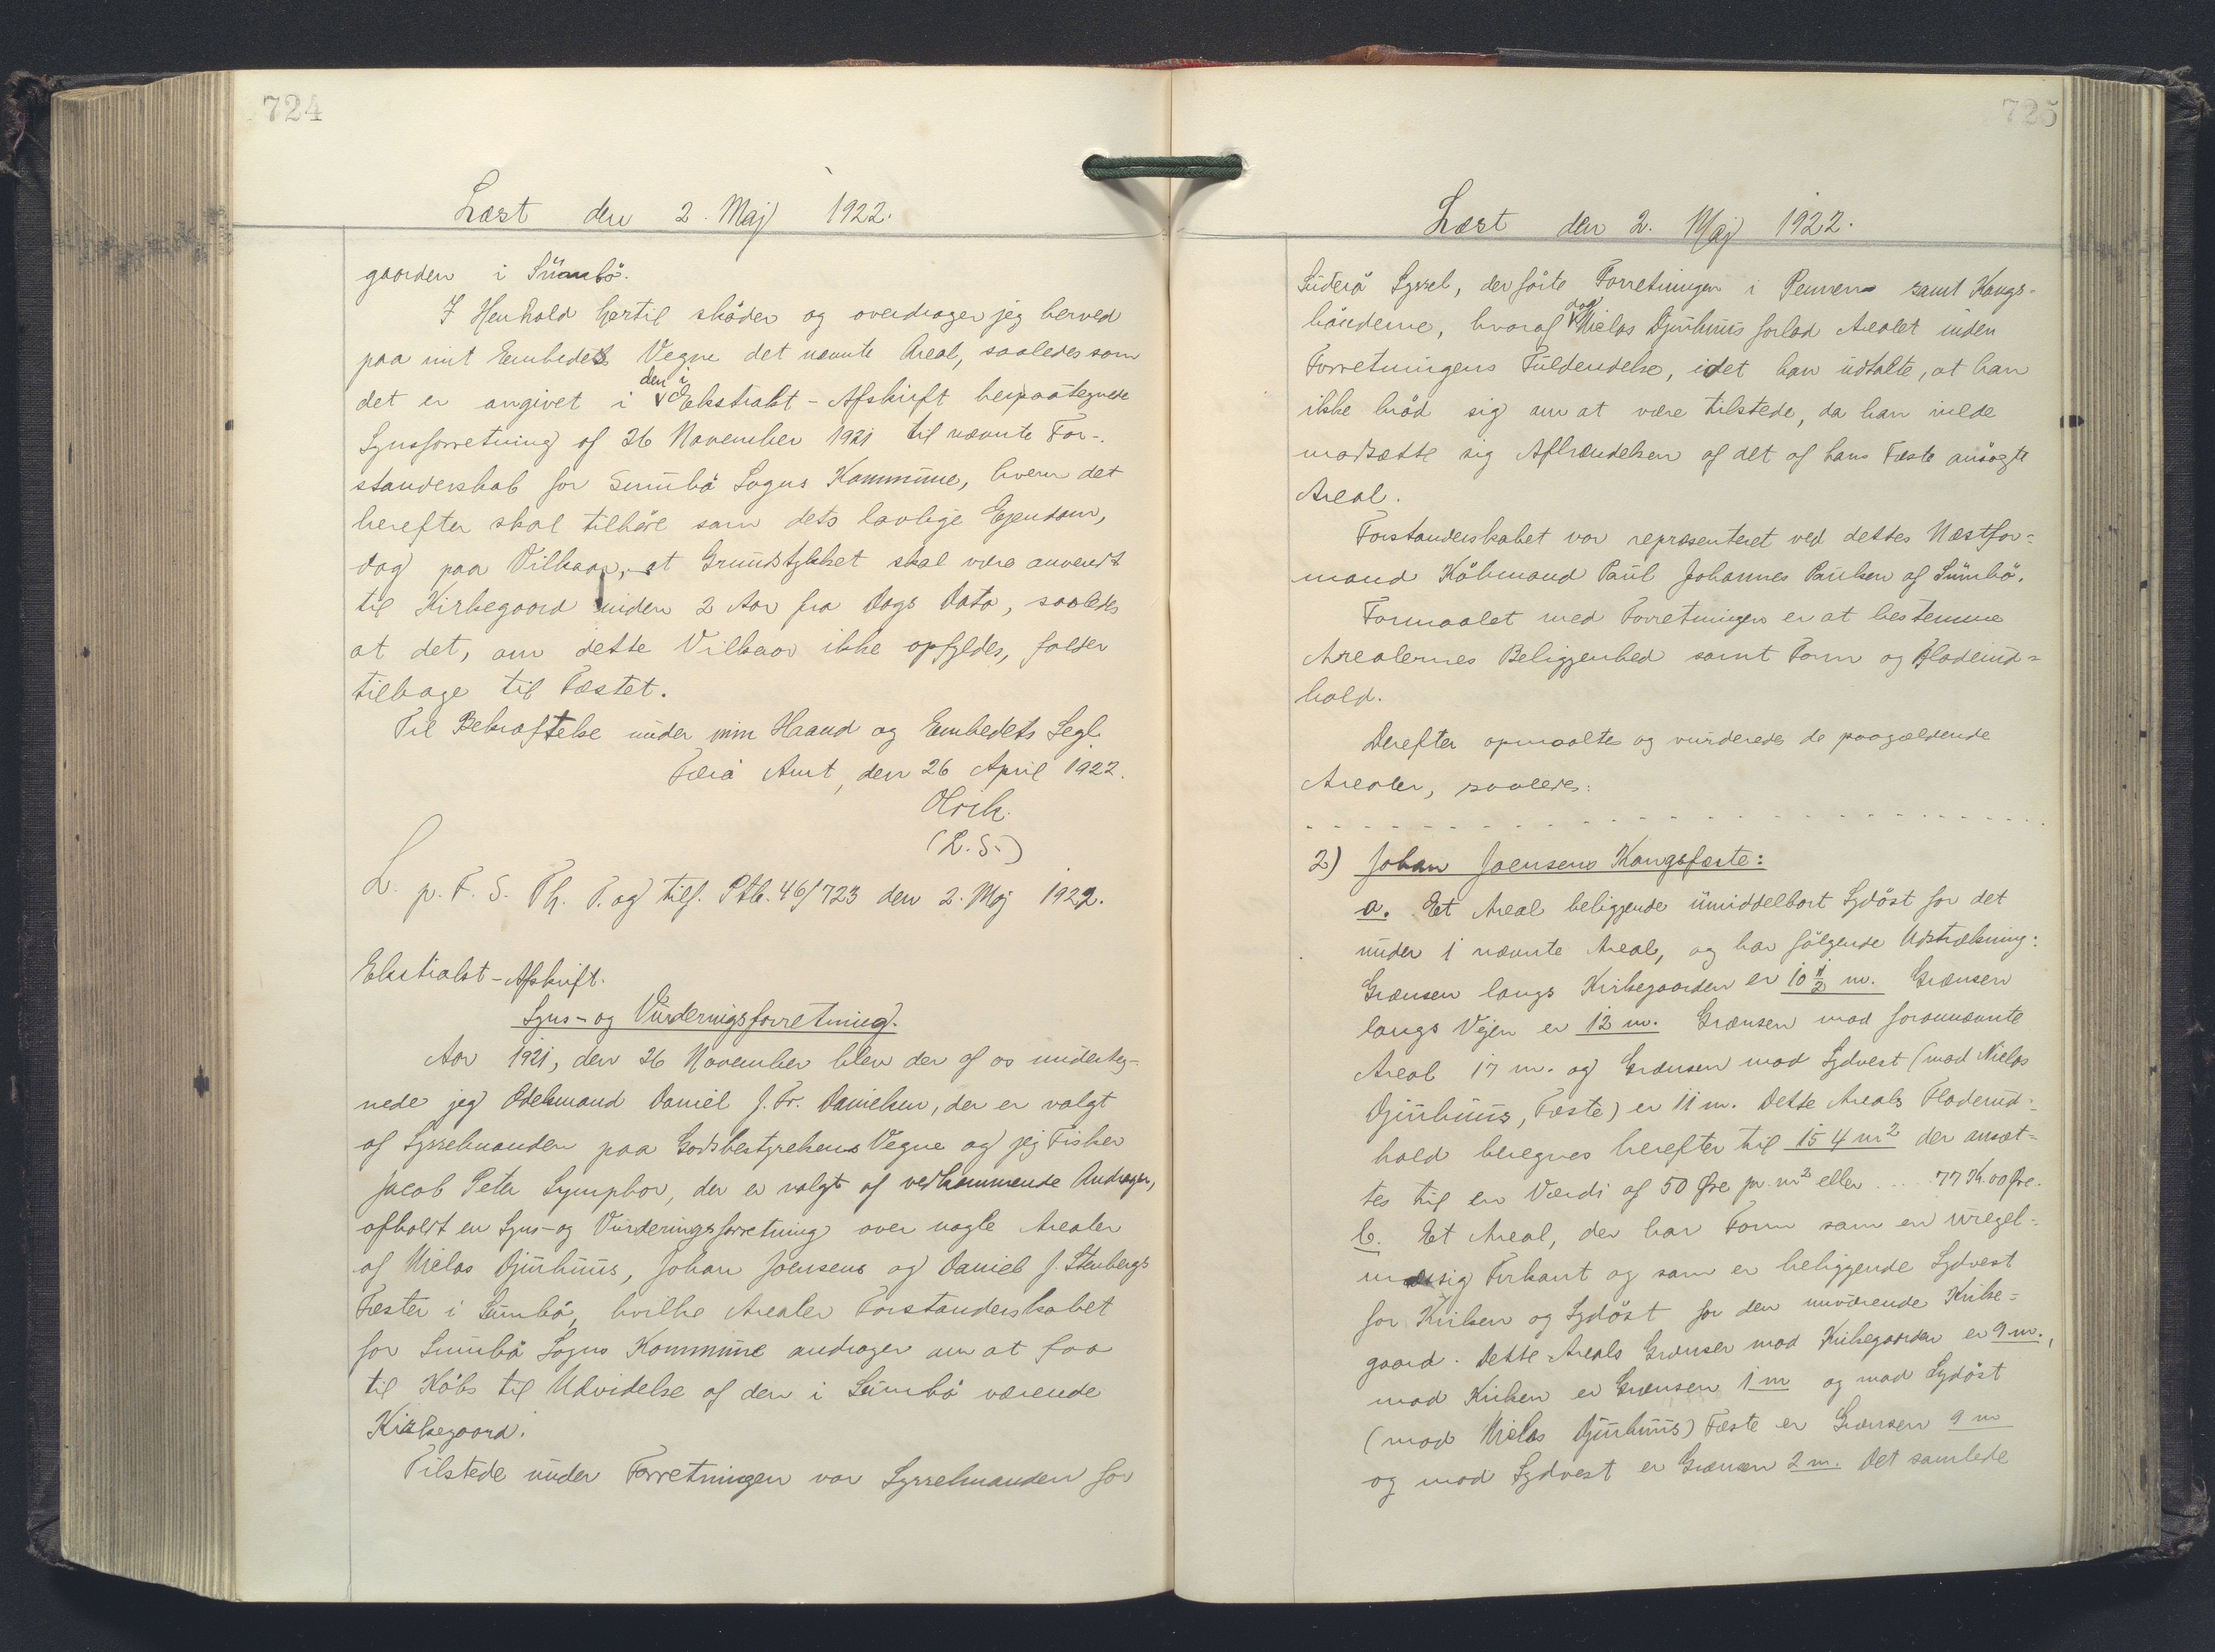 724
Læst den 2. Maj 1922.
gaarden i Sumbö.
I Henhold hertil sköder og overdrager jeg herved
paa mit Embedes Vegne det nævnte Areal, saaledes som
den i
det er angivet i Ekstrakt-Afskrift herpaategnede
Synsforretning af 26 November 1921 til nævnte For-
standerskab for Sumbö Sogns Kommune, hvem det
herefter skal tilhöre som dets lovlige Ejendom,
dog paa Vilkaar, at Grundstykket skal være anvendt
til Kirkegaard inden 2 Aar fra Dags Dato, saaledes
at det, om dette Vilkaar ikke opfyldes, falder
tilbage til Fæstet.
Til Bekræftelse under min Haand og Embedets Segl.
Færö Amt, den 26 April 1922.
Olrik.
(L.S.)
L. p. F. S. Th. P. og tilf. Ptb. 46/723 den 2. Maj 1922.
Ekstrakt-Afskrift.
Syns- og Vurderingsforretning.
Aar 1921, den 26 November blev der af os underteg-
nede jeg Odelsmand Daniel J. Fr. Danielsen, der er valgt
af Sysselmanden paa Godsbestyrelsens Vegne og jeg Fisker
Jacob Peter Symphor, der er valgt af vedkommende Andrager,
afholdt en Syns- og Vurderingsforretning over nogle Arealer
af Niclas Djurhuus, Johan Joensens og Daniel J. Stenbergs
Fæster i Sumbö, hvilke Arealer Forstanderskabet
for Sumbö Sogns Kommune andrager om at faa
til Köbs til Udvidelse af den i Sumbö værende
Kirkegaard.
Tilstede under Forretningen var Sysselmanden for
725
Læst den 2. Maj 1922.
Suderö Syssel, der förte Forretningen i Pennen samt Kongs-
dog
bönderne, hvoraf Niclas Djurhuus forlod Arealet inden
Forretningens Fuldendelse, idet han udtalte, at han
ikke bröd sig om at være tilstede, da han vilde
modsætte sig Afhændelsen af det af hans Fæste ansögte
Areal.
Forstanderskabet var repræsenteret ved dettes Næstfor-
mand Köbmand Paul Johannes Paulsen af Sumbö.
Formaalet med Forretningen er at bestemme
Arealernes Beliggenhed samt Form og Fladeind-
hold.
Derefter opmaaltes og vurderedes de paagældende
Arealer, saaledes:
2) Johan Joensens Kongsfæste:
a. Et Areal beliggende umiddelbart Sydöst for det
under 1 nævnte Areal, og har fölgende Udstrækning:
Grænsen langs Kirkegaarden er 10 1/2 m. Grænsen
langs Vejen er 12 m. Grænsen mod forannævnte
Areal 17 m. og Grænsen mod Sydvest (mod Niclas
Djurhuus, Fæste) er 11 m. Dette Areals Fladeind-
hold beregnes herefter til 154 m² der ansæt-
tes til en Værdi af 50 Øre pr. m² eller .... 77 K. 00 Øre.
b. Et Areal, der har Form som en uregel-
mæssig Firkant og som er beliggende Sydvest
for Kirken og Sydöst for den nuværende Kirke-
gaard. Dette Areals Grænser mod Kirkegaarden er 9 m.,
mod Kirken er Grænsen 1 m og mod Sydöst
(mod Niclas Djurhuus) Fæste er Grænsen 9 m
og mod Sydvest er Grænsen 2 m. Det samlede